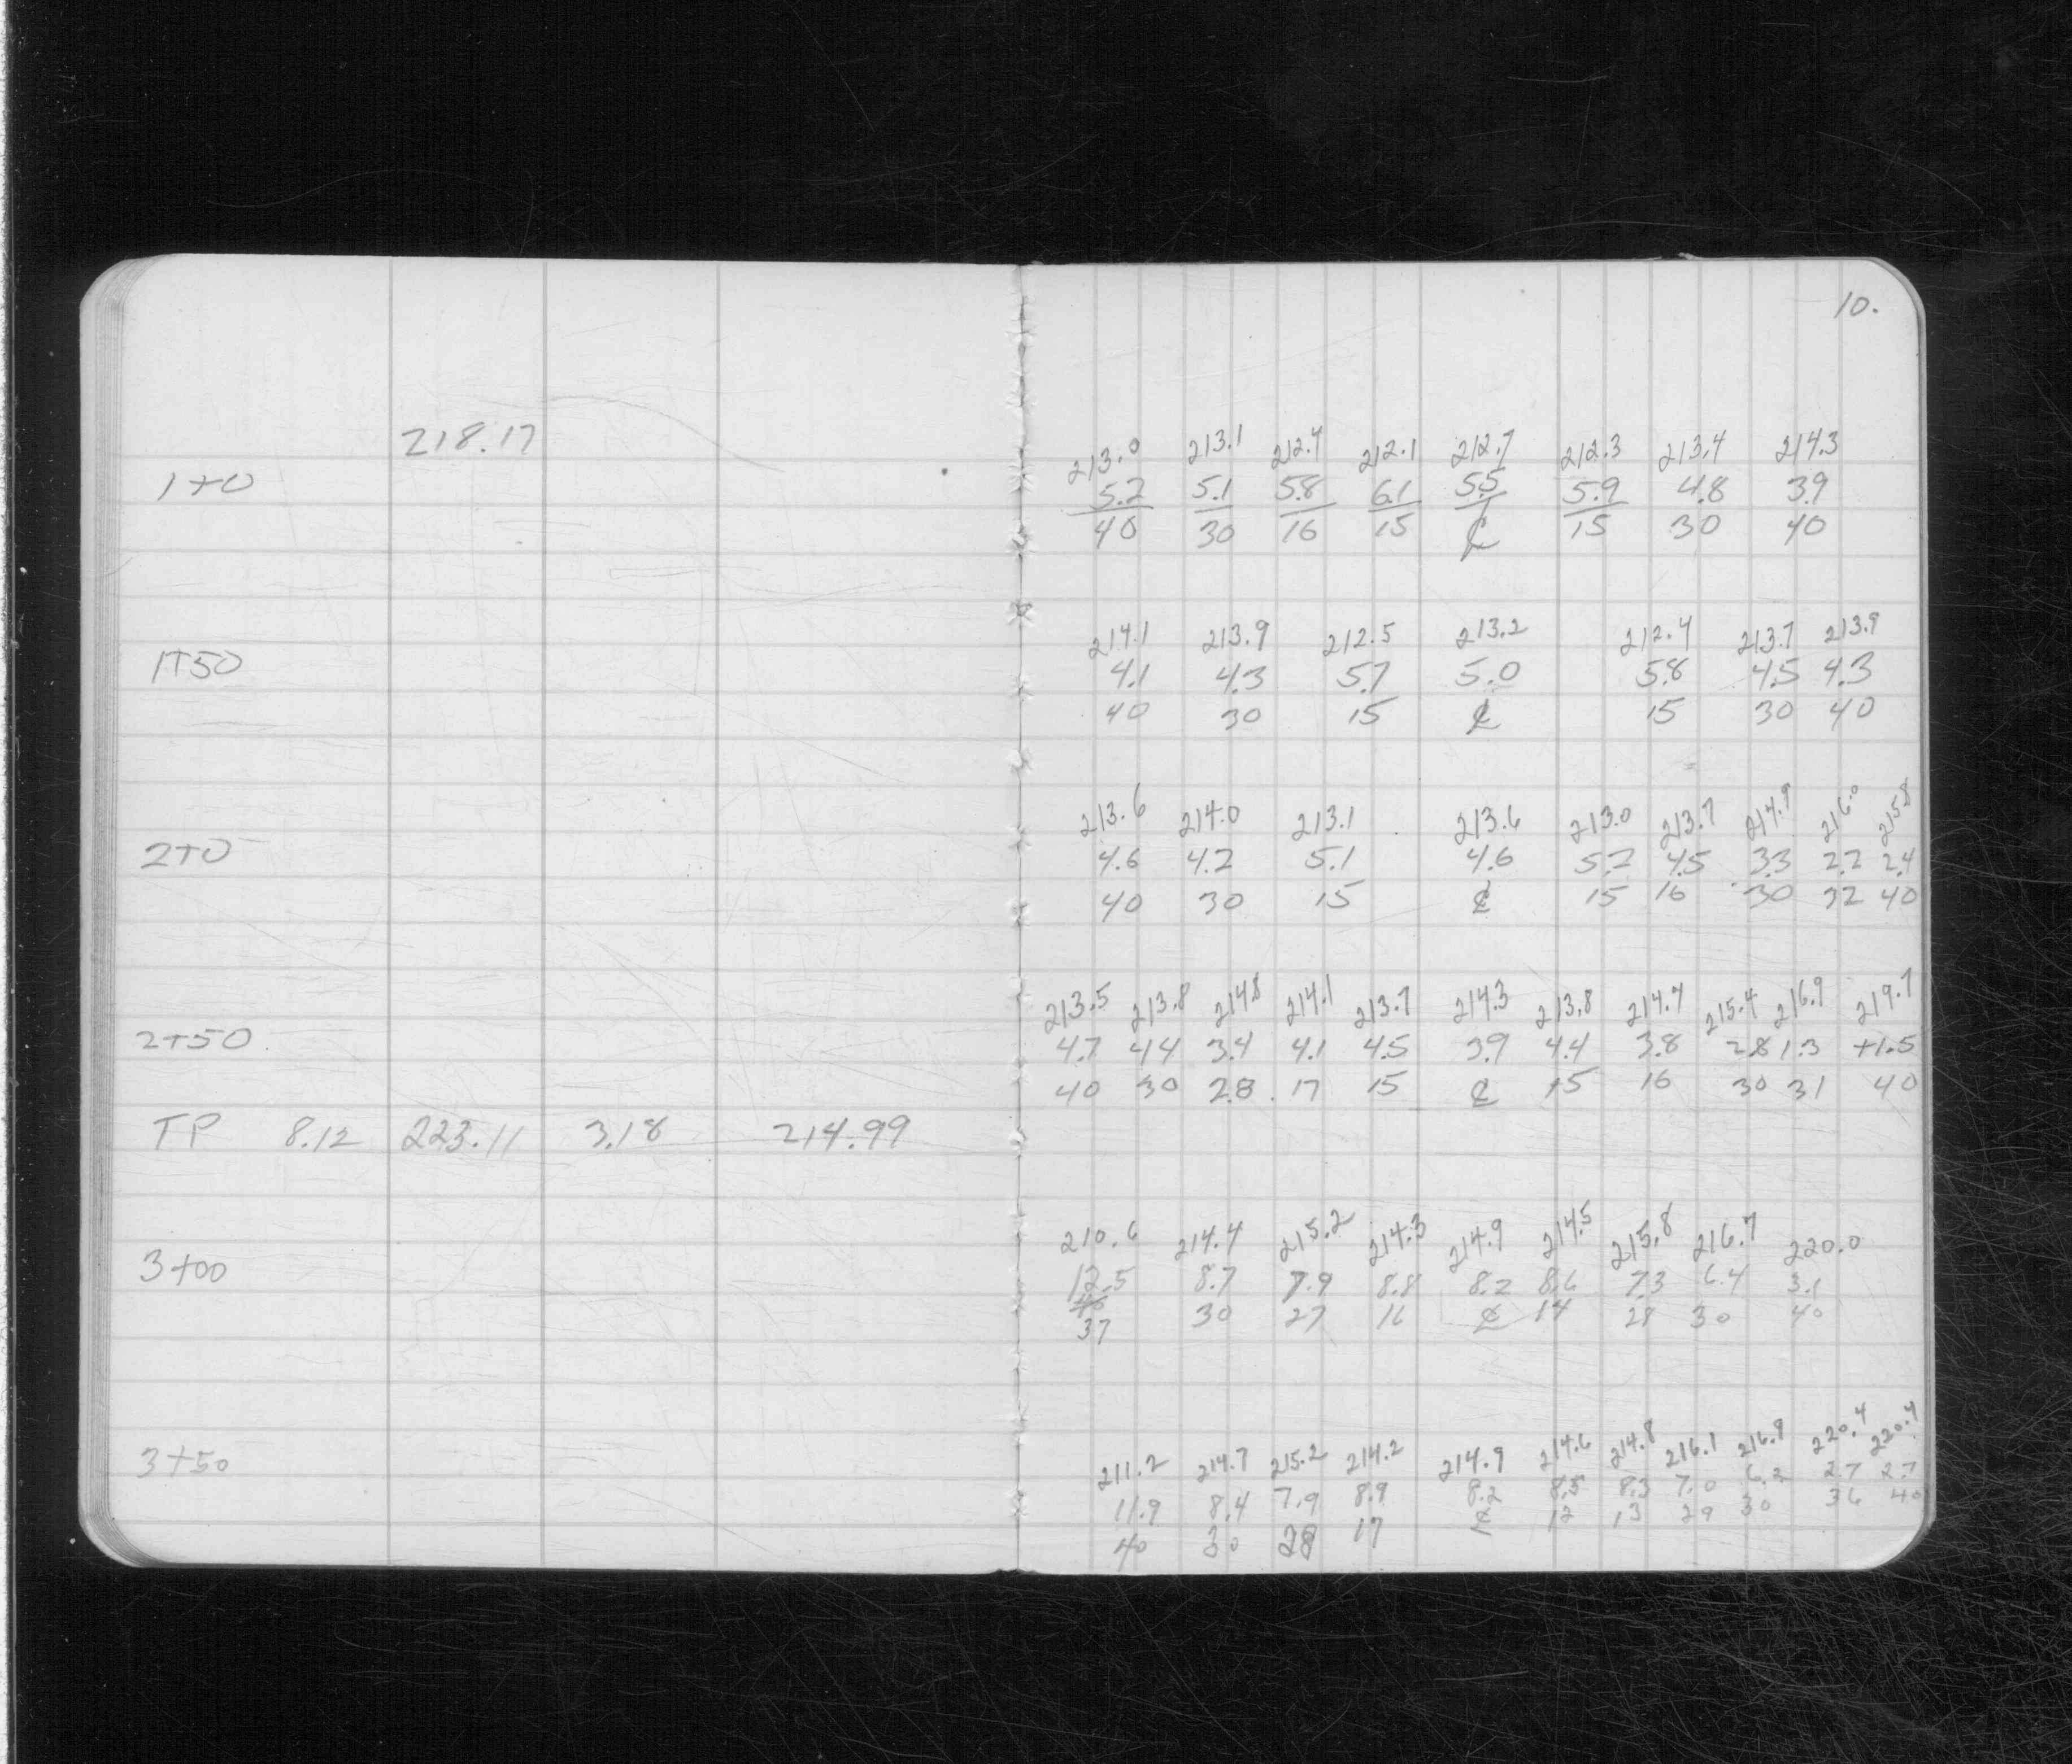 10.
218.17
213.0 213.1 212.4 212.1 212.7 212.3 213.4 214.3
1+0 5.2 5.1 5.8 6.1 5.5 5.9 4.8 3.9
40 30 16 15 ℄ 15 30 40
214.1 213.9 212.5 213.2 212.4 213.7 213.9
1+50 4.1 4.3 5.7 5.0 5.8 4.5 4.3
40 30 15 ℄ 15 30 40
213.6 214.0 213.1 213.6 213.0 213.7 214.9 216.0 215.8
2+0 4.6 4.2 5.1 4.6 5.2 4.5 3.3 2.2 2.4
40 30 15 ℄ 15 16 30 32 40
213.5 213.8 214.8 214.1 213.7 214.3 213.8 214.4 215.4 216.9 219.7
2+50 4.7 4.4 3.4 4.1 4.5 3.9 4.4 3.8 2.8 1.3 +1.5
40 30 28 17 15 ℄ 15 16 30 31 40
TP 8.12 223.11 3.18 214.99
210.6 214.4 215.2 214.3 214.9 214.5 215.8 216.7 220.0
3+00 12.5 8.7 7.9 8.8 8.2 8.6 7.3 6.4 3.1
40 30 27 16 ℄ 14 28 30 40
37
211.2 214.7 215.2 214.2 214.9 214.6 214.8 216.1 216.9 220.4 220.4
3+50 11.9 8.4 7.9 8.9 8.2 8.5 8.3 7.0 6.2 2.7 2.7
40 30 28 17 ℄ 12 13 29 30 36 40